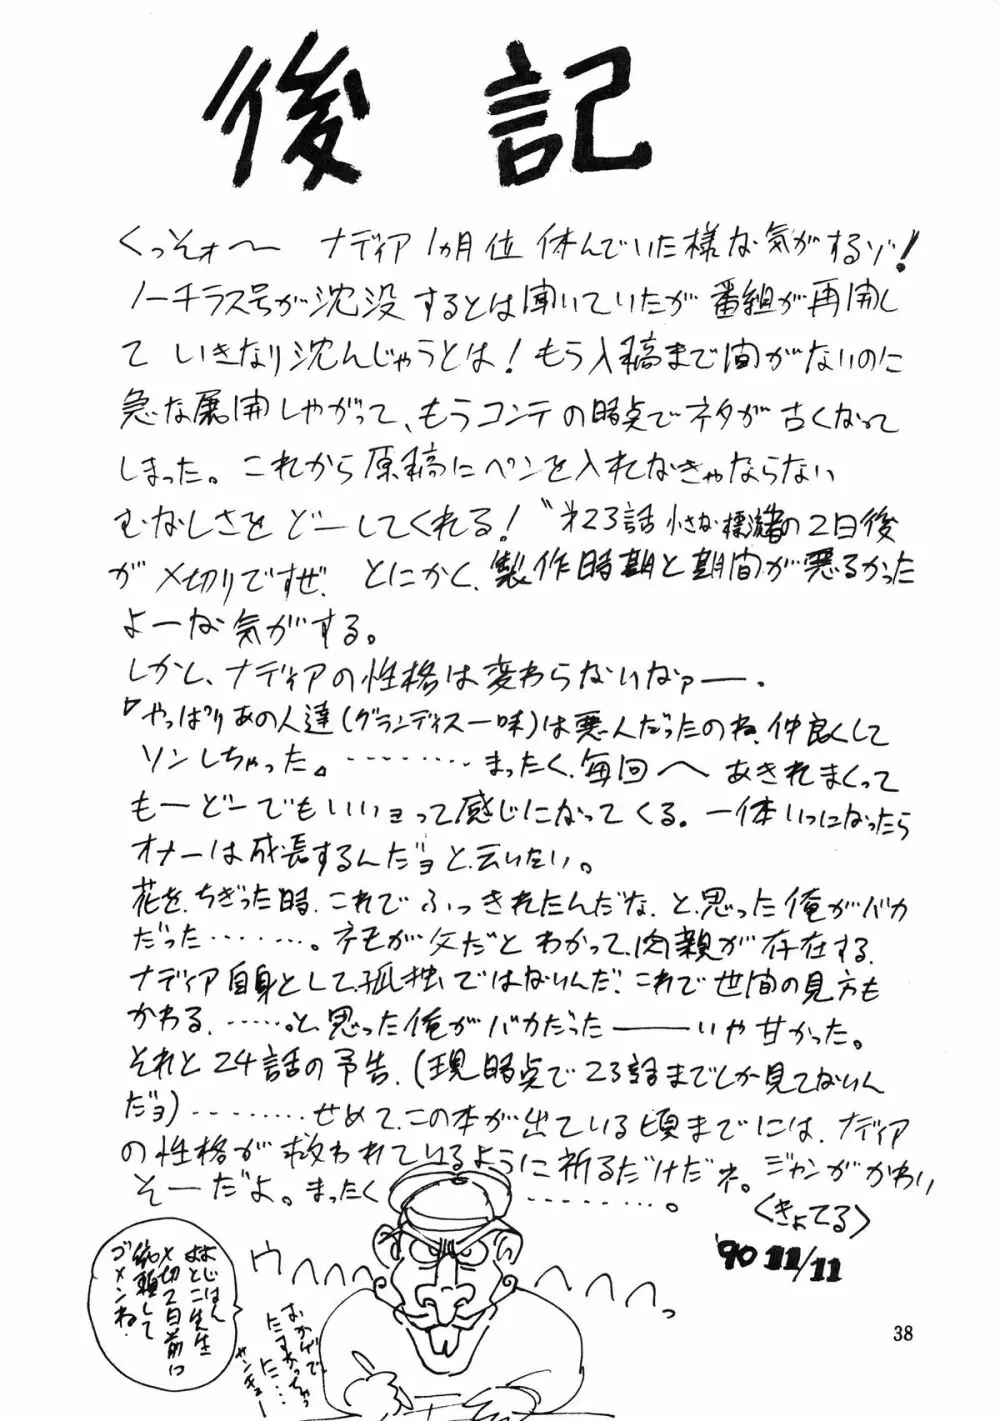 後記
くっそォ〜 ナディア1ヵ月位 休んでいた様な気がするゾ!
ノーチラス号が沈没するとは聞いていたが 番組が再開し
て いきなり沈んじゃうとは!もう入稿まで間がないのに
急な展開しやがって、もうコンテの時点でネタが古くなって
しまった。これから原稿にペンを入れなきゃならない
むなしさを どーしてくれる!〝第23話 小さな漂流者の2日後
が〆切りですぜ. とにかく、製作時期と期間が悪るかった
よーな気がする。
しかし、ナディアの性格は変わらないなァー.
「やっぱりあの人達(グランディス一味)は悪人だったのね、仲良くして
ソンしちゃった。」………まったく、毎回へ あきれまくって
もーどーでもいいョって感じになってくる。一体いつになったら
オナーは成長するんだョと、云いたい。
花を、ちぎった時、これで ふっきれたんだな、と、思った俺がバカ
だった………。ネモが父だと わかって、肉親が存在する、
ナディア自身として、孤独ではないんだ、これで世間の見方も
かわる、……。と、思った俺がバカだった――いや甘かった。
それと24話の予告、(現時点で23話までしか見てないん
だョ)………せめて、この本が出ている頃までには、ナディア
の性格が救われているように祈るだけだネ。ジャンがかわい
そーだよ。まったく………。
〈きょてる〉
'90 11/11
ウヘヘヘヘ ヘヘヘヘっ
よじはん
よとこ先生
〆切2日前に
依頼して
ゴメンね.
おかげで
たすかっちゃっ
た…
サンキュー
38